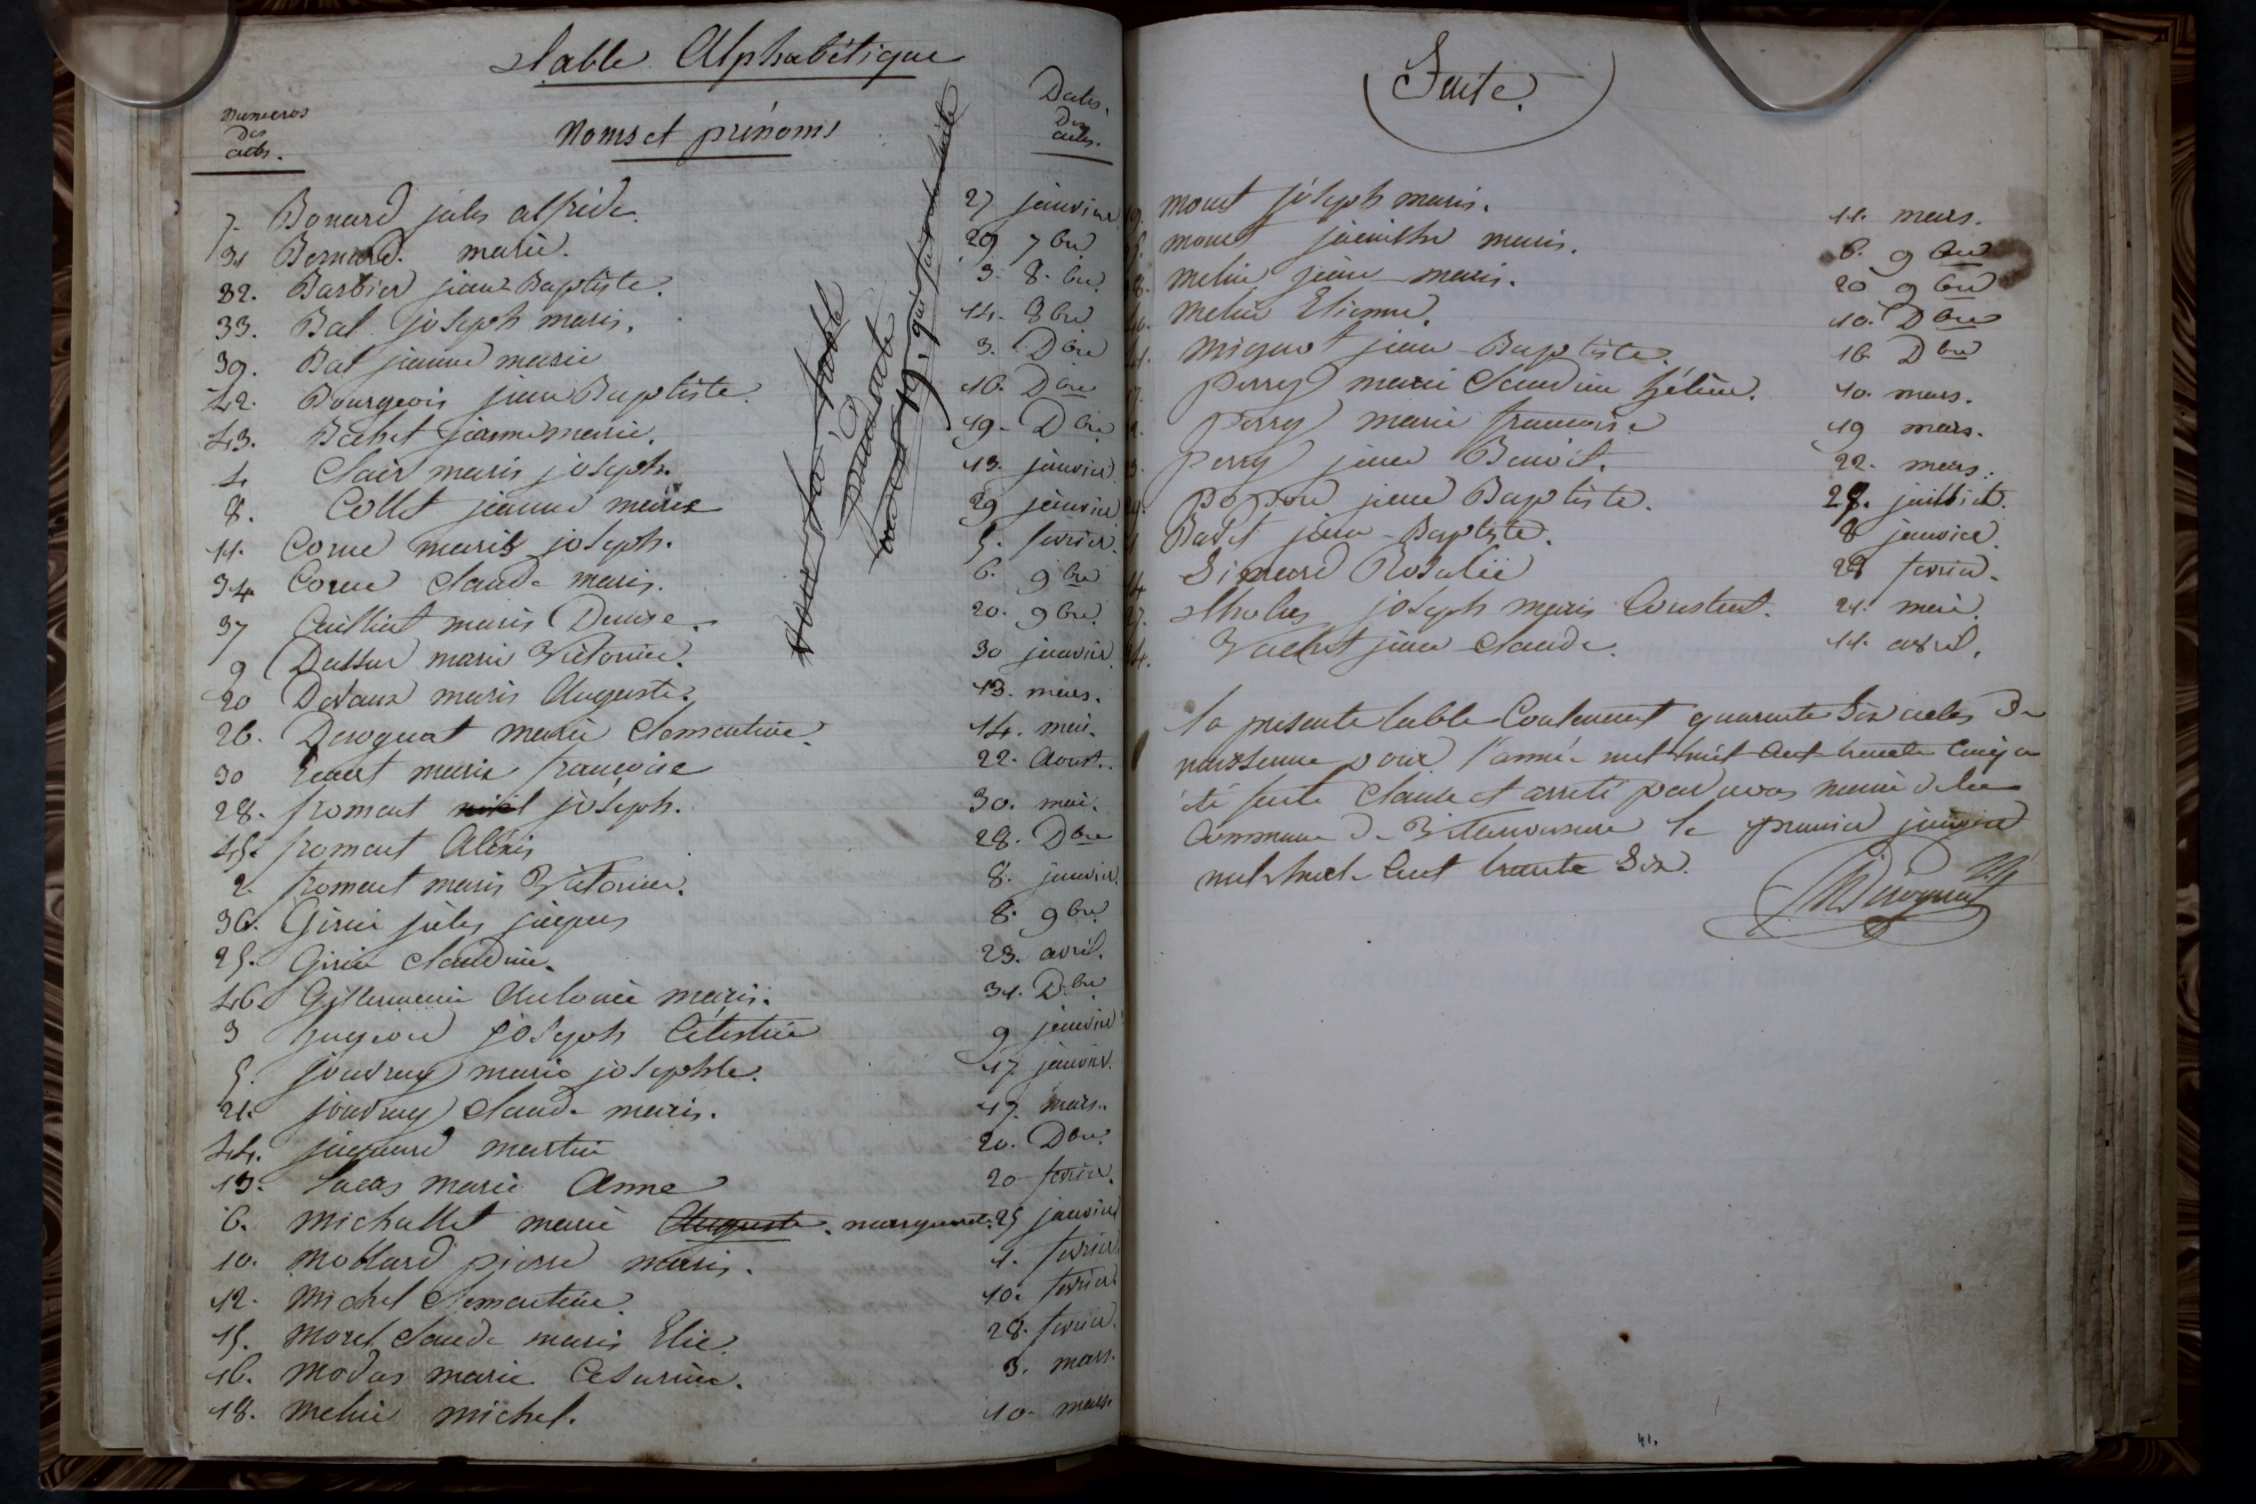 Table Alphabétique
numeros
des
actes.
Noms et prénoms
Dates.
Des
actes.
7. Bonard jules alfride. 27 janvier
31 Bernard. marie. 29 7bre
32. Barbier jean Baptiste. 3. 8.bre
33. Bal joseph marie. 14. 8bre
39. Bal jeanne marie 3. Dbre
42. Bourgeois jean Baptiste. 16. Dbre
43. Bachet jeanne marie. 19. Dbre
4 Clair marie joseph. 13. janvier
8. Collet jeanne marie 29 janvier
11. Corne marie joseph. 5. fevrier.
34 Corne Claude marie. 6. 9bre
37 marie Denise. 20. 9bre
9 marie Victorine. 30 janvier
20 Devaux marie Auguste. 13. mars.
26. Deroguat marie Clementine. 14. mai.
30 marie françoise 22. Aoust.
28. froment joseph. 30. mai.
45. froment Alexis 28. Dbre
2. froment marie Victorine. 8. janvier.
36. Girin jules jacques 8. 9bre
25. Girin Claudine. 23. avril.
46. Gillermain Antonie marie. 31. Dbre
3 hugron joseph Célestin 9 janvier
5. jouvray marie josephte. 17 janvier.
21. jouvray Claude marie. 17. mars.
44. jacquard martin 20. Dbre
13. Lacas marie Anne 20 fevrier.
6. Michallet marie Auguste. marguerite. 25 janvier
10. Mollard pierre marie. 1. fevrier
12. Michel Clementine. 10. fevrier
15. Morel Claude marie Elie. 28. fevrier.
16. Modas marie Cesarine. 3. mars.
18. Melin michel. 10. mars.
Voir la table
présente
qui fait suite
Suite.
19. Monet joseph marie. 11. mars.
Monet jacinthe marie. 6. 9bre
8. Melin jean marie. 20 9bre
Melin Etienne. 10. Dbre
Mignot jean Baptiste. 16 Dbre
Perrey marie Claudine hélène. 10. mars.
Perrey marie francoise 19 mars.
Perrey jean Benoit. 22. mars.
Popon jean Baptiste. 28. juillet.
1 jean Baptiste. 8 janvier
14 Simard Rosalie 28 fevrier.
27. Tholas joseph marie Constant. 21. mai.
24. Vachet jean Claude. 11. avril.
la presente table Contenant quarente six actes de
naissance pour l'année mil huit cent trente cinq a
été faite Clause et arreté par nous maire de la
Commune de Villereversure le premier janvier
mil huit Cent trente six.
Deroguat
41.